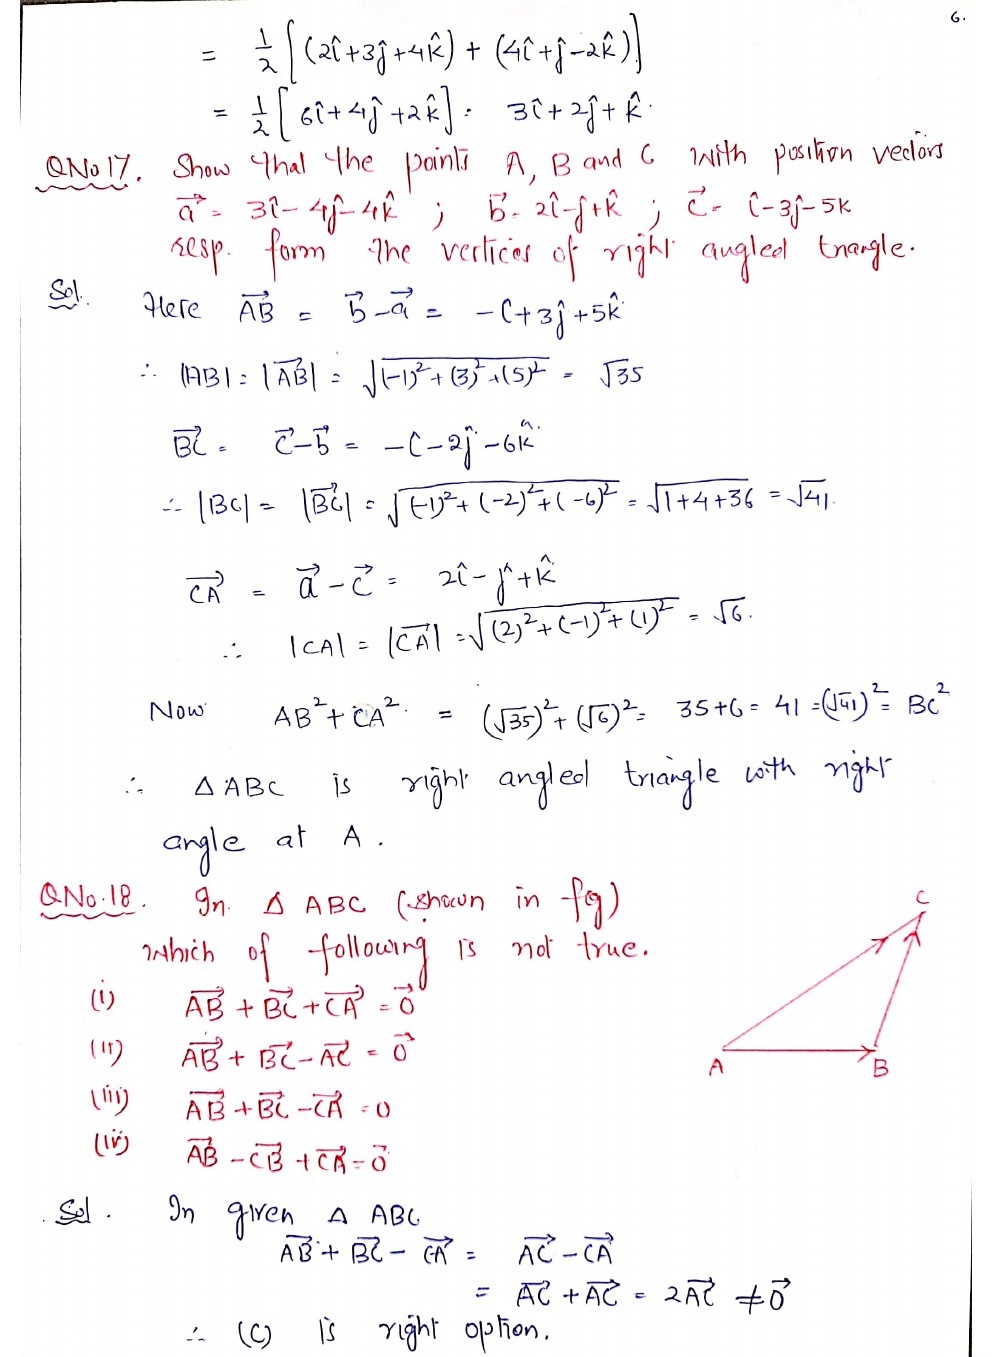 6.
= 1/2 [(2î+3ĵ+4k̂) + (4î+ĵ-2k̂)]
= 1/2 [6î+4ĵ+2k̂] . 3î+2ĵ+k̂.
QNo 17. Show that the points A, B and C with position vectors
a⃗ = 3î-4ĵ-4k̂ ; b⃗ = 2î-ĵ+k̂ ; c⃗ = î-3ĵ-5k
resp. form the vertices of right angled triangle.
Sol. Here AB⃗ = b⃗-a⃗ = -î+3ĵ+5k̂
∴ |AB| = |AB⃗| = √((-1)²+(3)²+(5)²) = √35
BC⃗ = c⃗-b⃗ = -î-2ĵ-6k̂.
∴ |BC| = |BC⃗| = √((-1)²+(-2)²+(-6)²) = √(1+4+36) = √41.
CA⃗ = a⃗-c⃗ = 2î-ĵ+k̂
∴ |CA| = |CA⃗| = √((2)²+(-1)²+(1)²) = √6.
Now AB²+CA² = (√35)²+(√6)² = 35+6 = 41 = (√41)² = BC²
∴ Δ ABC is right angled triangle with right
angle at A.
QNo.18. In Δ ABC (shown in fig)
Which of following is not true.
(i) AB⃗ + BC⃗ + CA⃗ = 0⃗
(ii) AB⃗ + BC⃗ - AC⃗ = 0⃗
(iii) AB⃗ + BC⃗ - CA⃗ = 0
(iv) AB⃗ - CB⃗ + CA⃗ = 0⃗
C
A
B
Sol. In given Δ ABC
AB⃗ + BC⃗ - CA⃗ = AC⃗ - CA⃗
= AC⃗ + AC⃗ = 2AC⃗ ≠ 0⃗
∴ (C) is right option.